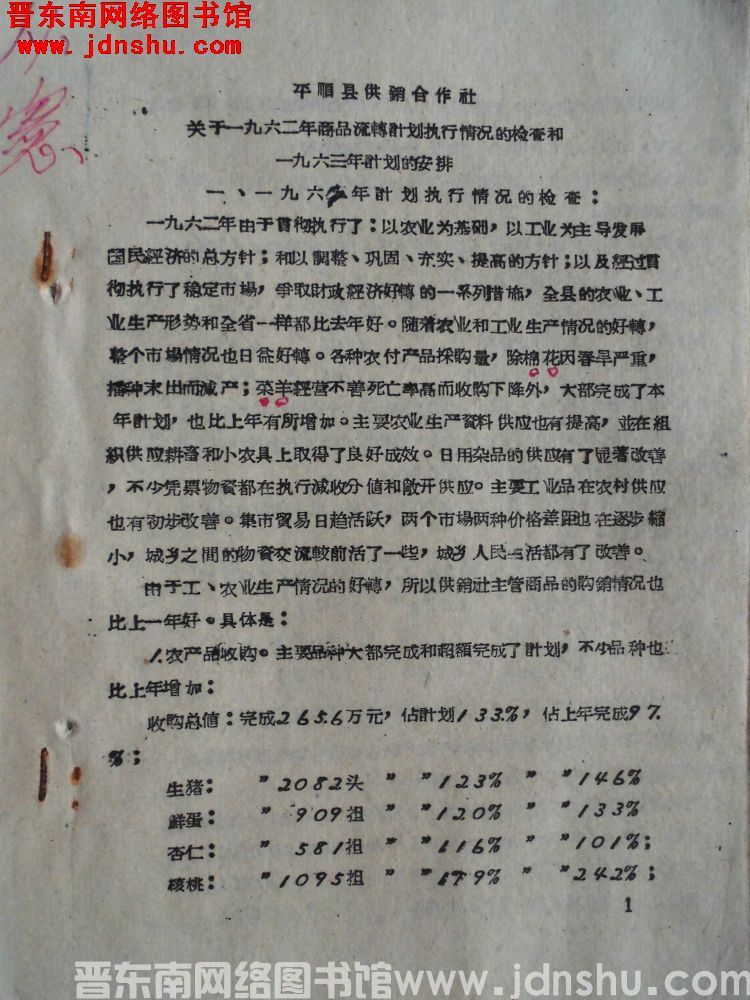 晋东南网络图书馆
www.jdnshu.com
平順县供銷合作社
关于一九六二年商品流轉計划执行情况的检查和
一九六三年計划的安排
一、一九六二年計划执行情况的检查：
一九六二年由于貫彻执行了：以农业为基础，以工业为主导发展
国民經济的总方针；和以調整、巩固、充实、提高的方针；以及經过貫
彻执行了稳定市場，爭取財政經济好轉的一系列措施，全县的农业、工
业生产形势和全省一样都比去年好。随着农业和工业生产情况的好轉，
整个市場情况也日益好轉。各种农付产品採购量，除棉花因春旱严重，
播种未出而减产；菜羊經营不善死亡率高而收购下降外，大部完成了本
年計划，也比上年有所增加。主要农业生产資料供应也有提高，並在組
織供应耕畜和小农具上取得了良好成效。日用杂品的供应有了显著改善
，不少凭票物資都在执行减收分值和敞开供应。主要工业品在农村供应
也有初步改善。集市貿易日趋活跃，两个市場两种价格差距也在逐步縮
小，城乡之間的物資交流較前活了一些，城乡人民生活都有了改善。
由于工、农业生产情况的好轉，所以供銷社主管商品的购銷情况也
比上一年好。具体是：
1.农产品收购。主要品种大都完成和超額完成了計划，不少品种也
比上年增加：
收购总值：完成265.6万元，佔計划133.%，佔上年完成97.
%；
生猪： 〃2082头 〃 〃123% 〃 〃146%
鮮蛋： 〃 909担 〃 〃120% 〃 〃133%
杏仁： 〃 581担 〃 〃116% 〃 〃101%；
核桃： 〃1095担 〃 〃179% 〃 〃242%；
1
晋东南网络图书馆www.jdnshu.com